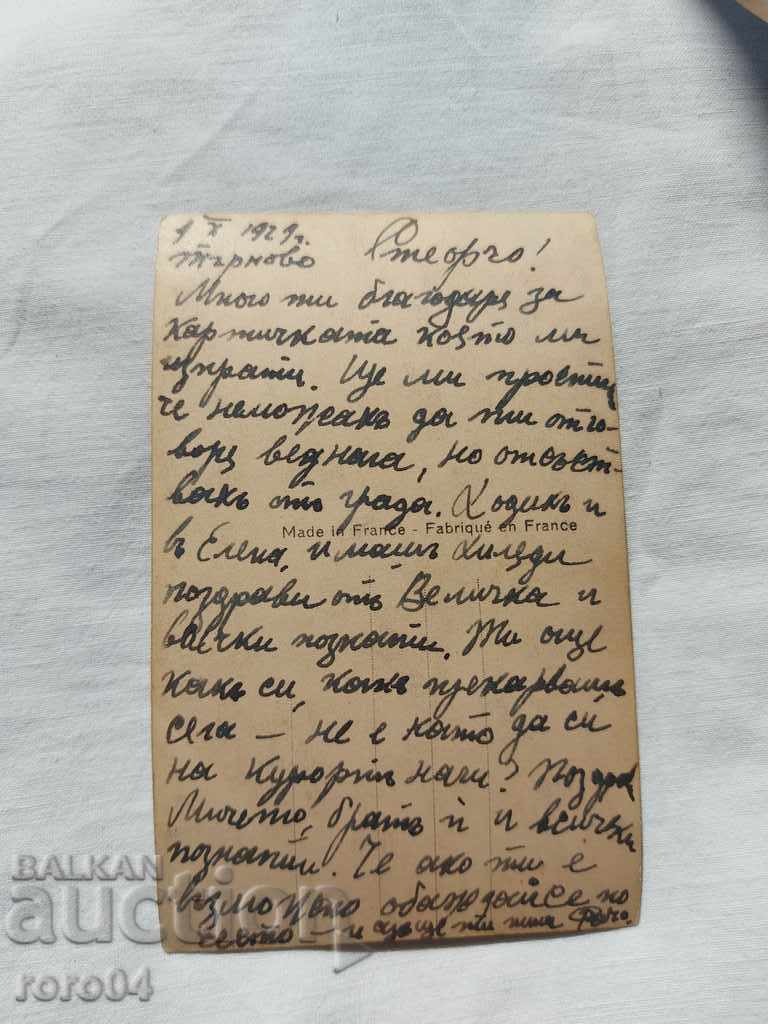 9 X 1929 г.
Търново Стеорчо!
Много ти благодаря за
картичката която ми
изпрати. Ще ми простиш
че неможахъ да ти отго-
воря веднага, но отсъст-
вахъ отъ града. Ходихъ и
Made in France - Fabriqué en France
въ Елена, имашъ хиляди
поздрави отъ Величка и
всички познати. Ти още
какъ си, какъ прекарвашъ
сега – не е като да си
на курортъ нали? Поздрави
Мичето, братъ ѝ и всички
познати. Че ако ти е
възможно обаждайсе по
често – и азъ ще ти пиша
BALKAN
auction
roro04